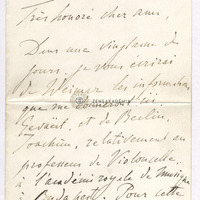 Très honoré cher ami,
Dans une vingtaine de
jours je vous écrirai
de Weimar les informations
que me donneront
Gevaërt, et de Berlin,
Joachim, relativement au
professeur de Violoncelle,
à l'académie royale de musique
à Budapest. Pour cette
ZENEAKADÉMIA